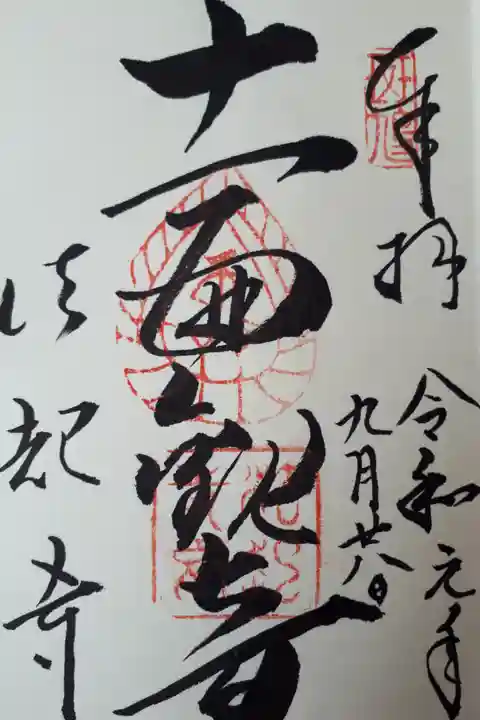 奉拝
令和元年
九月廿八日
十一面観音
法起寺